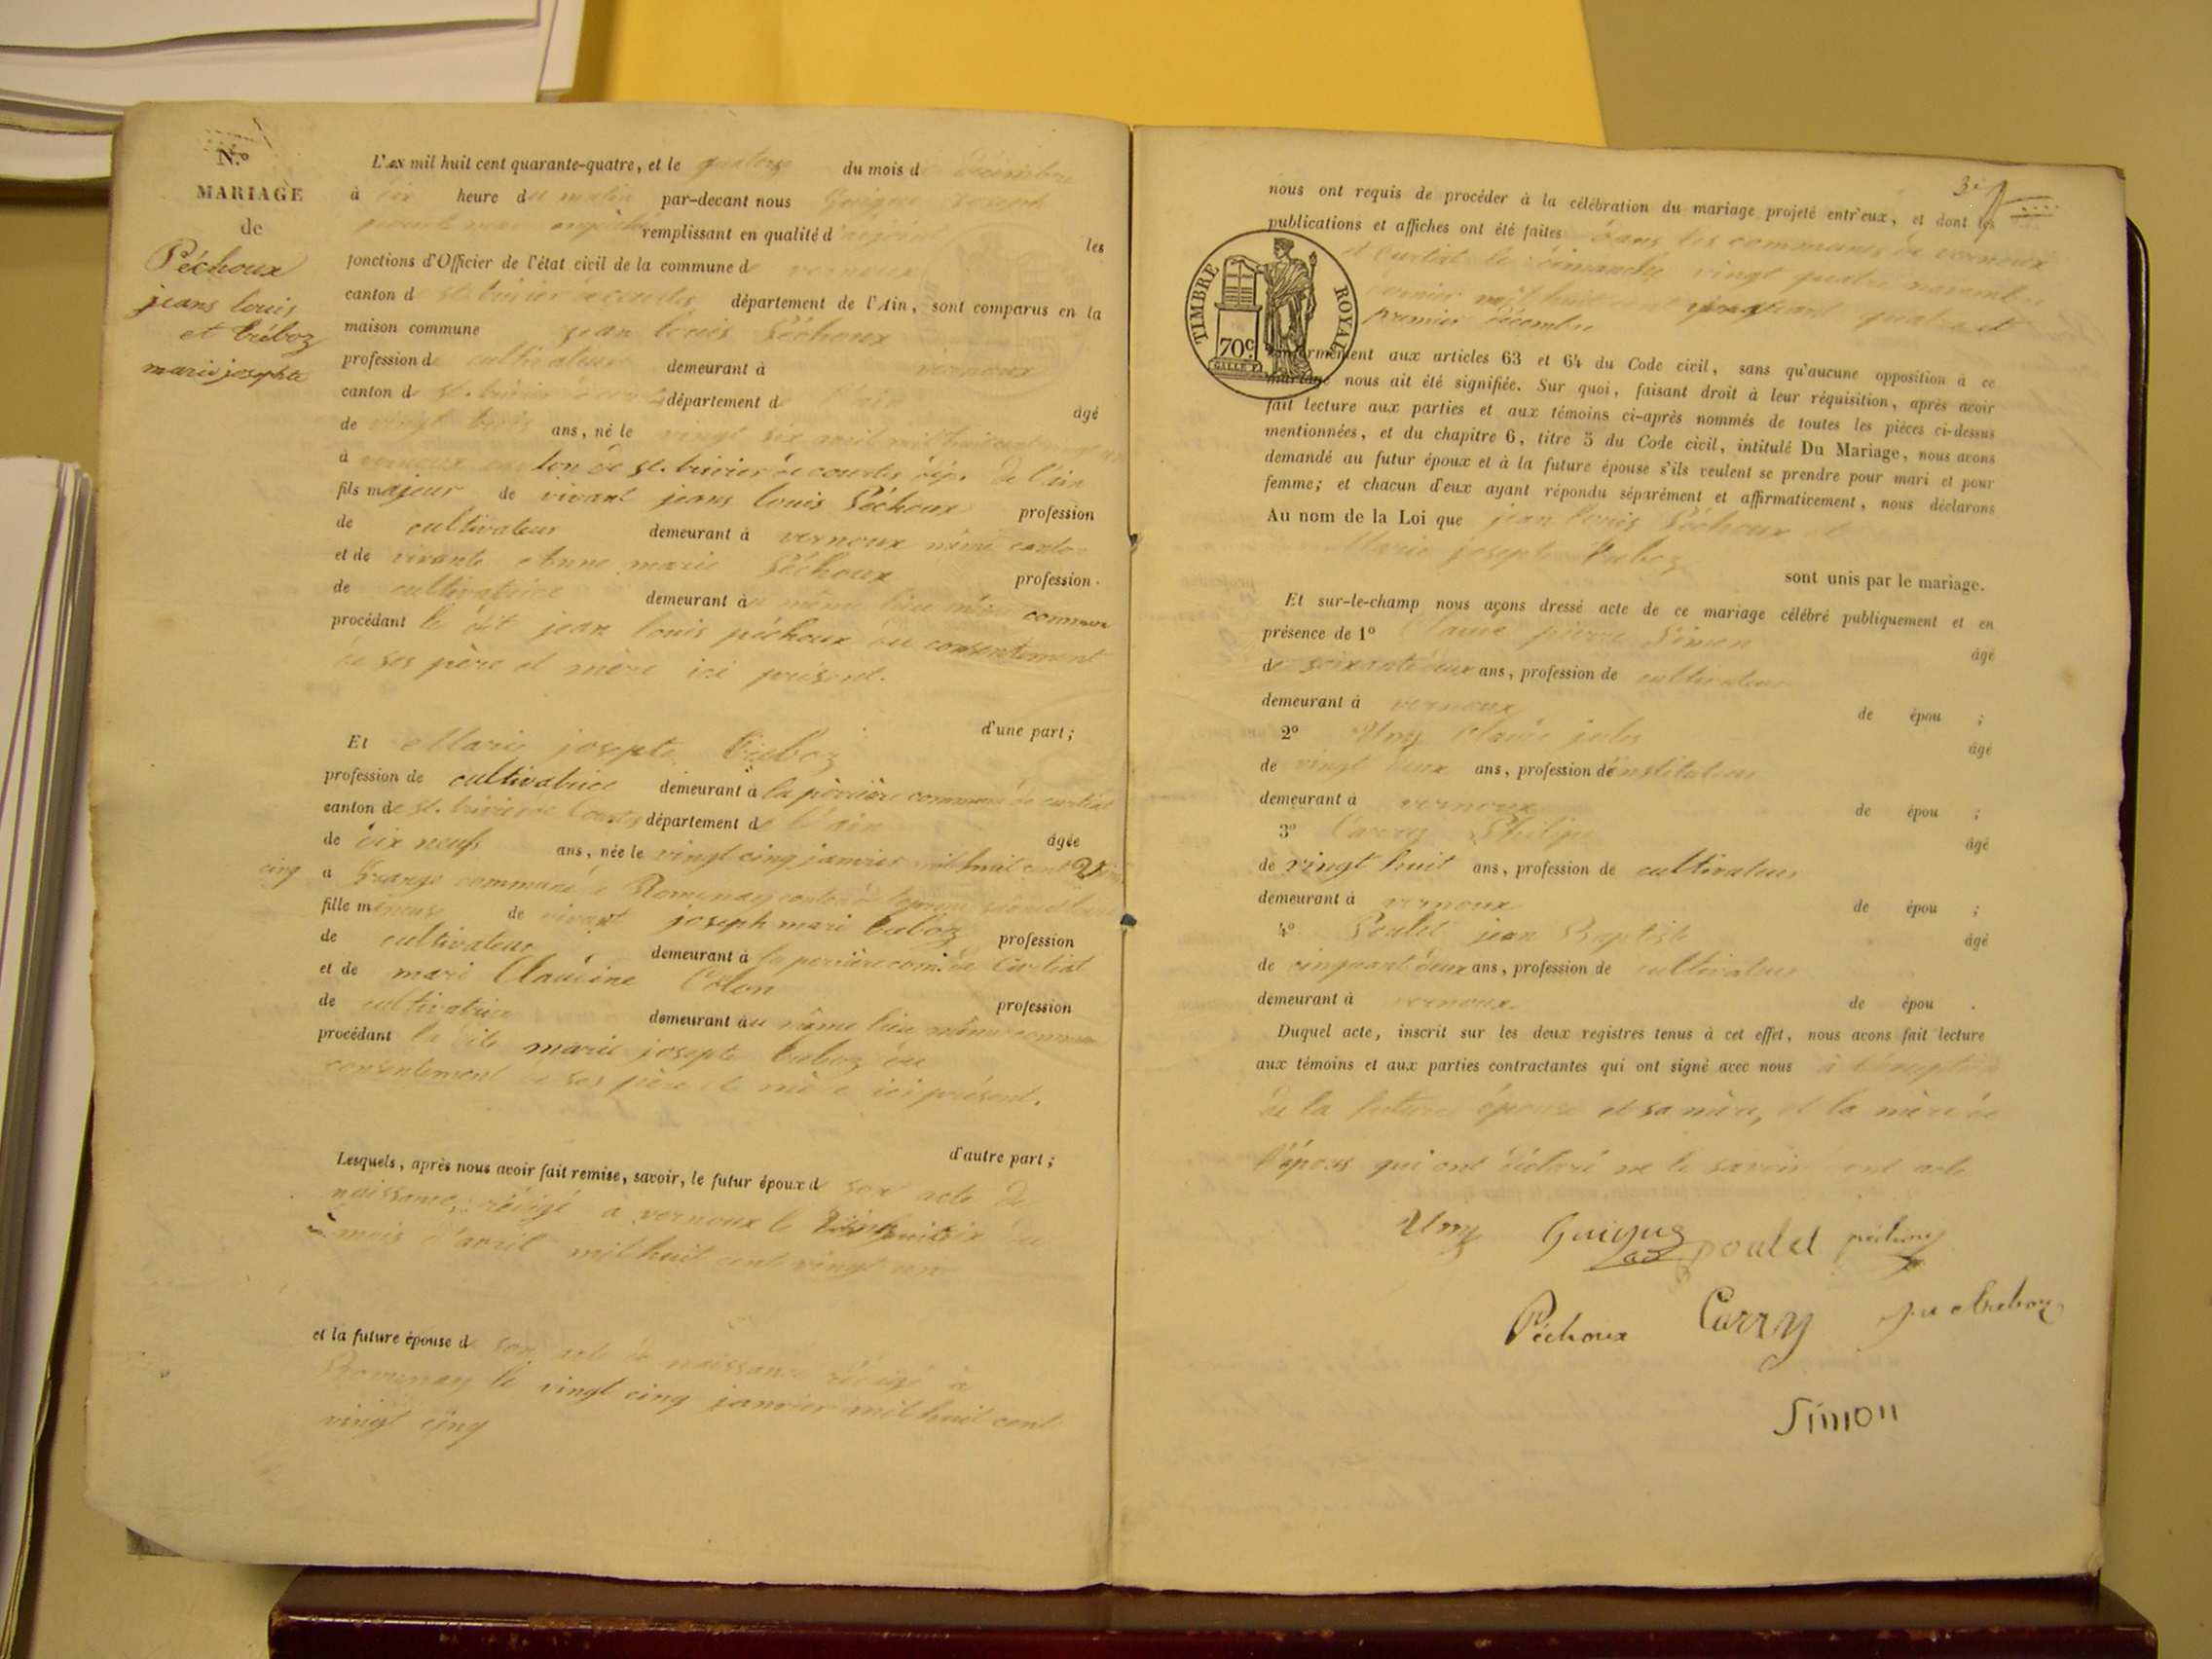 N.º
MARIAGE
de
Péchoux
jeans louis
et tréboz
marie josephte
L'an mil huit cent quarante-quatre, et le quatorze du mois d décembre
à dix heure du matin par-devant nous Guigue joseph
remplissant en qualité d'adjoint les
fonctions d'Officier de l'état civil de la commune de vernoux
canton de st. trivier de courtes département de l'Ain, sont comparus en la
maison commune jean louis Péchoux
profession de cultivateur demeurant à vernoux
canton de st. trivier de courtes département de l'ain âgé
de vingt trois ans, né le vingt six avril mil huit cent vingt un
à vernoux canton de st. trivier de courtes dép. de l'ain
fils majeur de vivant jeans louis Péchoux profession
de cultivateur demeurant à vernoux même canton
et de vivante Anne marie Péchoux profession
de cultivatrice demeurant au même lieu même commune
procédant le dit jean louis péchoux du consentement
de ses père et mère ici présent.
d'une part;
Et Marie josepte Tréboz
profession de cultivatrice demeurant à la perrière commune de curtiat
canton de st. trivier de Courtes département de l'ain âgée
de dix neuf ans, née le vingt cinq janvier mil huit cent vingt
cinq à Grange commune de Romenay canton de
fille mineure de vivant joseph mari treboz profession
de cultivateur demeurant à la perrière com. de Curtiat
et de mari Claudine Colon profession
de cultivatrice demeurant au même lieu même commune
procédant la dite marie josepte treboz du
consentement de ses père et mère ici présent.
d'autre part;
Lesquels, après nous avoir fait remise, savoir, le futur époux de son acte de
naissance, rédigé à vernoux le vingt six du
mois d'avril mil huit cent vingt un
et la future épouse de son acte de naissance rédigé à
Romenay le vingt cinq janvier mil huit cent
vingt cinq
nous ont requis de procéder à la célébration du mariage projeté entr'eux, et dont les
publications et affiches ont été faites dans les communes de vernoux
et Curtiat le dimanche vingt quatre novembre
dernier mil huit cent quarant quatre et
premier décembre
TIMBRE ROYAL
70c
GALLE F.
conformément aux articles 63 et 64 du Code civil, sans qu'aucune opposition à ce
mariage nous ait été signifiée. Sur quoi, faisant droit à leur réquisition, après avoir
fait lecture aux parties et aux témoins ci-après nommés de toutes les pièces ci-dessus
mentionnées, et du chapitre 6, titre 5 du Code civil, intitulé Du Mariage, nous avons
demandé au futur époux et à la future épouse s'ils veulent se prendre pour mari et pour
femme; et chacun d'eux ayant répondu séparément et affirmativement, nous déclarons
Au nom de la Loi que jean louis Péchoux et
Marie josepte treboz
sont unis par le mariage.
Et sur-le-champ nous avons dressé acte de ce mariage célébré publiquement et en
présence de 1º Claude pierre Simon âgé
de soixante deux ans, profession de cultivateur
demeurant à vernoux de épou ;
2º Urny Claude jules âgé
de vingt deux ans, profession d'instituteur
demeurant à vernoux de épou ;
3º Carry Philipe âgé
de vingt huit ans, profession de cultivateur
demeurant à vernoux de épou ;
4º Poulet jean Baptiste âgé
de cinquant deux ans, profession de cultivateur
demeurant à vernoux. de épou .
Duquel acte, inscrit sur les deux registres tenus à cet effet, nous avons fait lecture
aux témoins et aux parties contractantes qui ont signé avec nous à l'exeption
de la future épouse et sa mère, et la mère de
l'épous qui ont déclaré ne le savoir
Urny Guigue poulet péchoux
Péchoux Carry
Simon